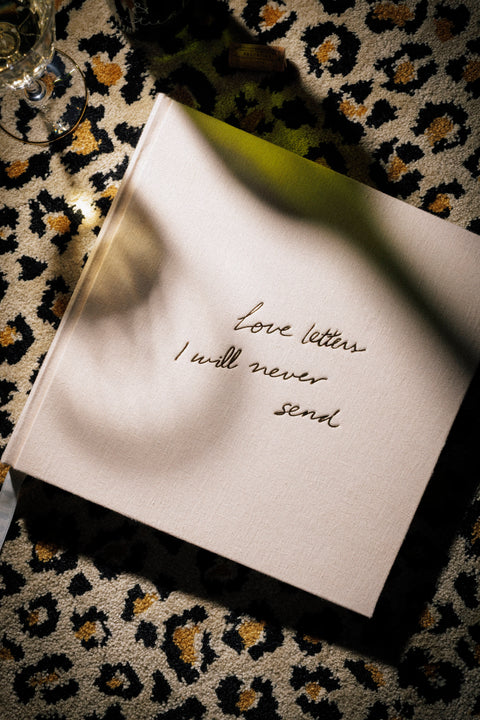 Love letters
I will never
send